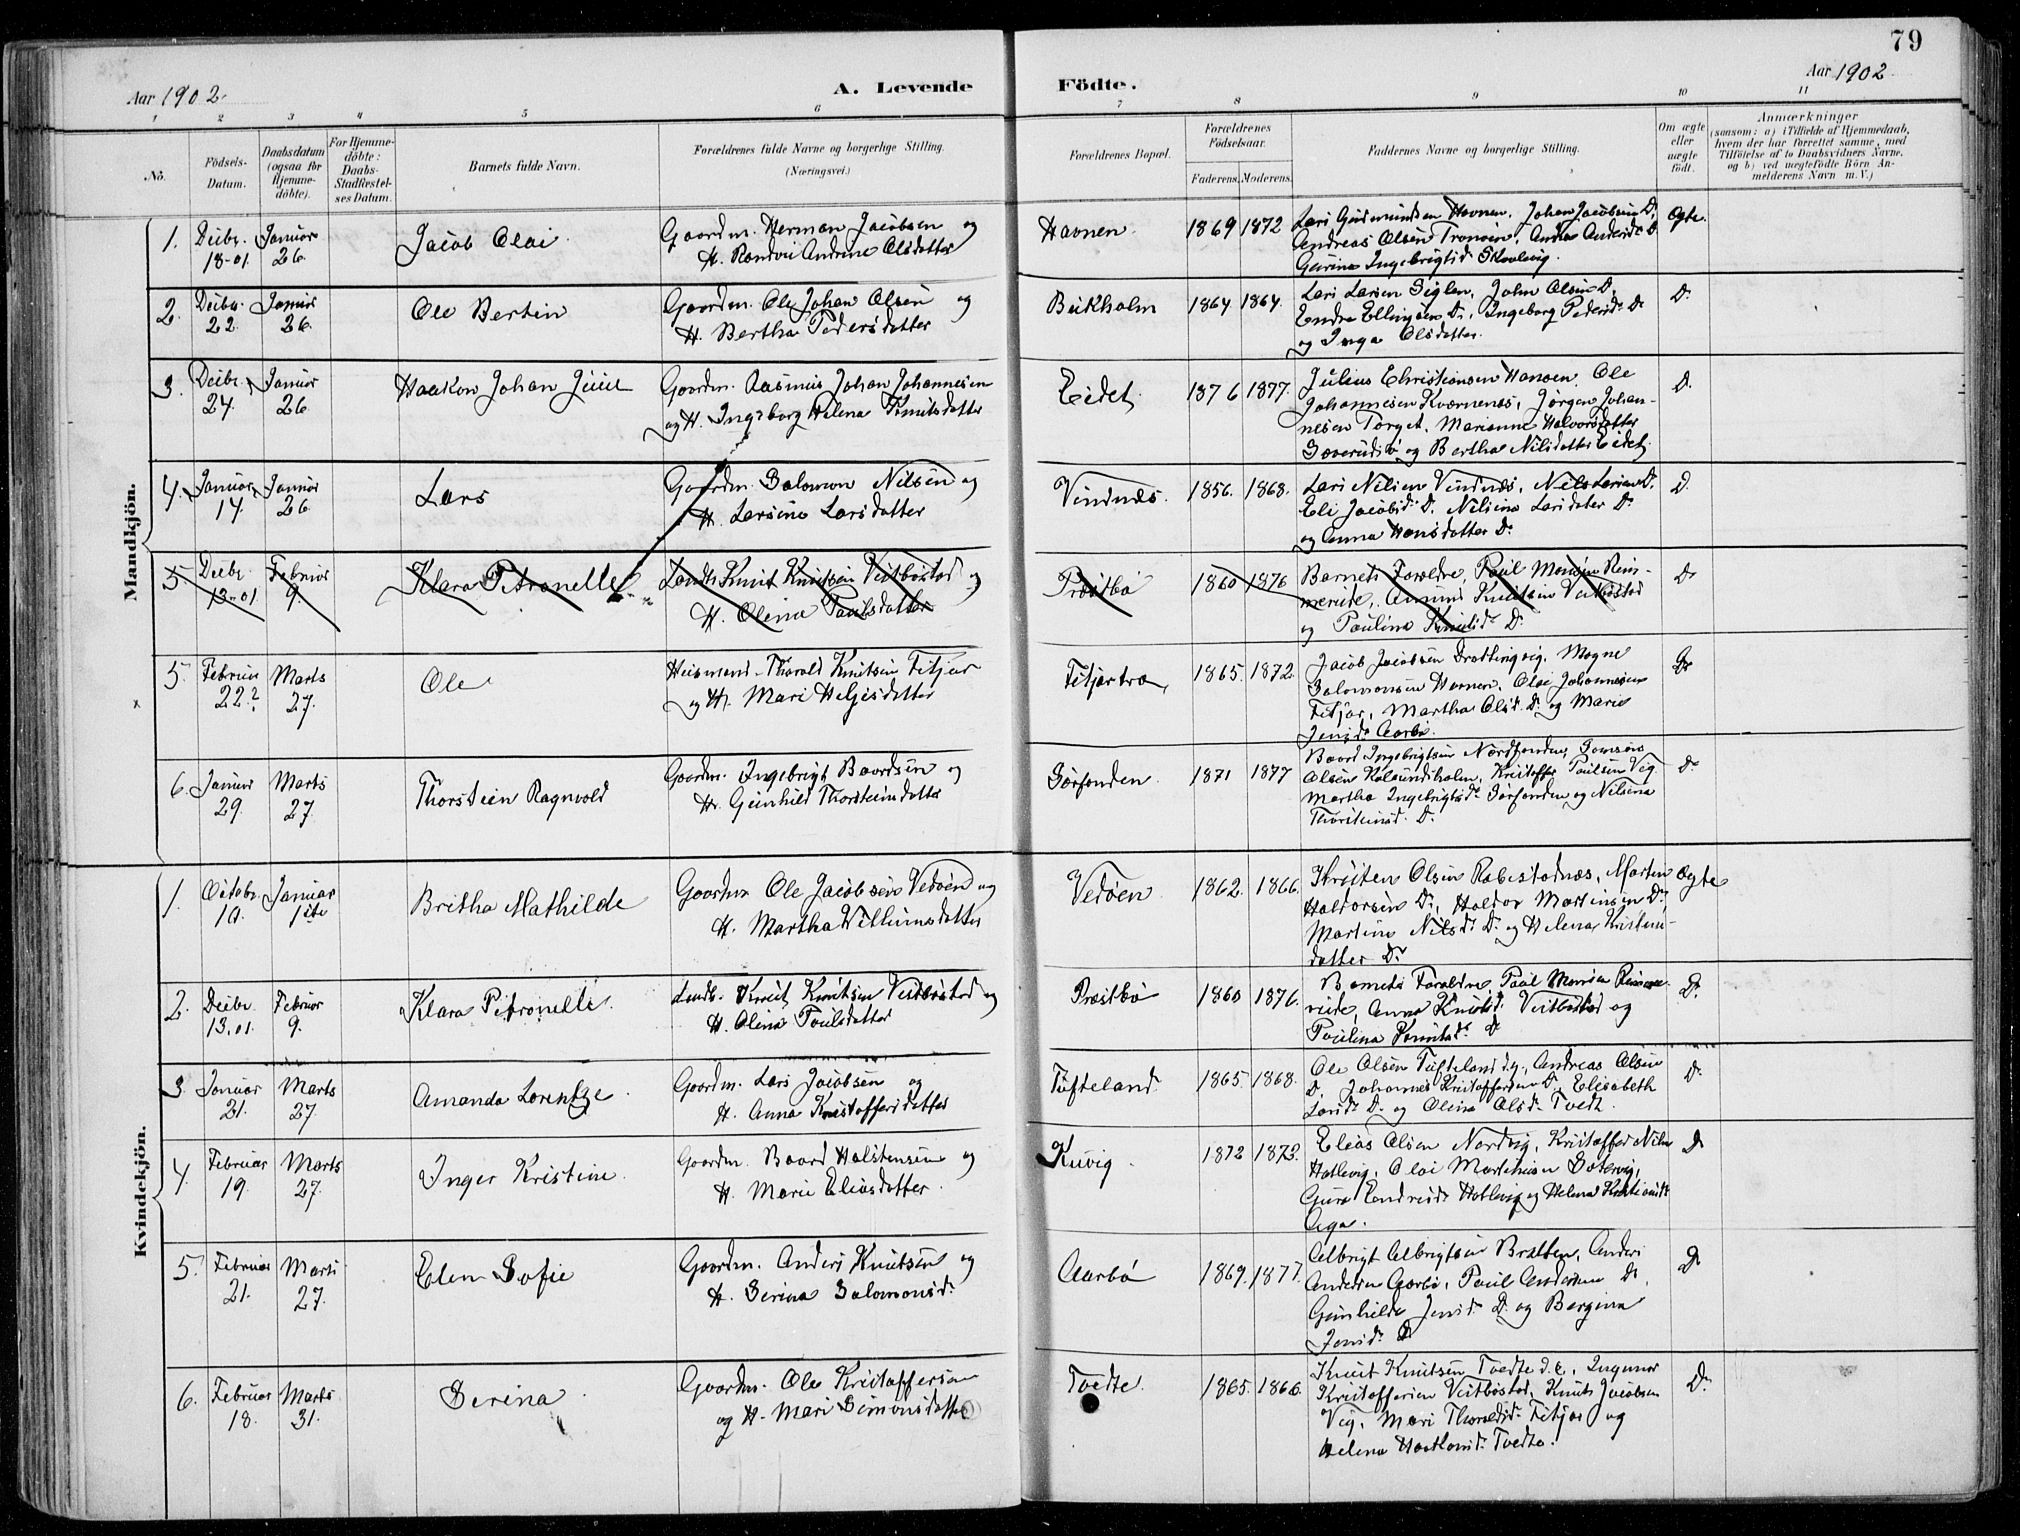 79
Aar 1902.
A. Levende
Födte.
Aar 1902
1 2 3 4 5 6 7 8 9 10 11
No.
Födsels-
Datum.
Daabsdatum
(ogsaa for
Hjemme-
döbte).
For Hjemme-
döbte:
Daabs-
Stadfæstel-
ses Datum.
Barnets fulde Navn.
Forældrenes fulde Navne og borgerlige Stilling.
(Næringsvei.)
Forældrenes Bopæl.
Forældrenes
Födselsaar.
Faderens. Moderens.
Faddernes Navne og borgerlige Stilling.
Om ægte
eller
uægte
födt.
Anmærkninger
(saasom: a) i Tilfælde af Hjemmedaab,
hvem der har forrettet samme, med
Tilföielse af to Daabsvidners Navne,
og b) ved uægtefödte Börn An-
melderens Navn m. V.)
Mandkjön.
1. Decbr. 18-01. Januar 26. Jacob Olai. Gaardm. Herman Jacobsen og
H. Randvei Andrine Olsdatter
Havnen. 1869 1872 Lars Gudmundsen Havnen, Johan Jacobsen D.
Andreas Olsen, Anna Andersd. D.
Ingebrigtsd. Skaalevig.
Ægte.
2. Decbr. 22. Januar 26. Ole Bertin Gaardm. Ole Johan Olsen og
H. Bertha Pedersdatter
Bukholm 1864 1864. Lars Larsen Siglen, John Olsen D.
Endre Ellingsen D., Ingeborg Pedersd. D.
og Inga Olsdatter.
D.
3. Decbr. 24. Januar 26. Haakon Johan Juul Gaardm. Rasmus Johan Johannesen
og H. Ingeborg Helena Knutsdatter
Eidet 1876 1877. Julius Christiansen Hansen, Ole
Johannesen Kværnenes, Jørgen Johan-
nesen Torget, Marianne Halvorsdatter
og Bertha Nilsdatter Eidet.
D.
4. Januar 14. Januar 26. Lars Gaardm. Salomon Nilsen og
H. Larsine Larsdatter
Vindnæs. 1856. 1868. Lars Nilsen Vindnæs, Nils Larsen D.
Eli Jacobsd. D. Nilsina Larsdatter D.
og Anna Hansdatter D.
D.
5 Decbr. 13-01 Februar 9. Klara Petronelle Landh. Knut Knutsen Vestbøstad og
H. Olina Paulsdatter
Præstbø 1860 1876 Barnets Forældre, Paul Monsen Rim-
mereide, Knutsen Vestbøstad
og Paulina Knutsd. D.
D.
5. Februar 22? Marts 27. Ole Husmand Thorvald Knutsen Fitjar
og H. Mari Helgesdatter
Fitjartræ, 1865. 1872. Jacob Jacobsen Drotlingvig, Mogne
Salomonsen Havnen, Olai Johannesen
Fitjar, Martha Olsd. D. og Marie
Jensd. Aarbø.
D.
6. Januar 29. Marts 27. Thorstein Ragnvald Gaardm. Ingebrigt Baardsen og
H. Gunhild Thorsteinsdatter
Sørfonden. 1871 1877 Baard Ingebrigtsen Nordfonden, Samson
Olsen Kalsundholm, Kristoffer Paulsen Vig
Martha Ingebrigtsd. Sørfonden og Nilsina
Thorsteinsd. D.
D.
Kvindekjön.
1. Octobr. 10. Januar 1ste Britha Mathilde Gaardm. Ole Jacobsen Vedøen og
H. Martha Willumsdatter
Vedøen 1862. 1866. Kristen Olsen Rabestadnæs, Martin
Haldorsen D., Haldor Martinsen D.
Martina Nilsd. D. og Helena Kristens-
datter D.
Ægte
2. Decbr. 13.01. Februar 9. Klara Petronelle. Landh. Knut Knutsen Vestbøstad og
H. Olina Paulsdatter
Præstbø 1860 1876. Barnets Forældre, Paul Monsen Rimme-
reide, Anna Knutsd. Vestbøstad og
Paulina Knutsd. D.
D.
3. Januar 21. Marts 27 Amanda Lorentze. Gaardm. Lars Jacobsen og
H. Anna Kristoffersdatter
Tufteland 1865 1868. Ole Olsen Tufteland d.y., Andreas Olsen
D. Johannes Kristoffersen D., Elisabeth
Larsd. D. og Olina Olsd. Tvedt.
D.
4. Februar 19. Marts 27. Inger Kristine Gaardm. Baard Halstensen og
H. Marie Eliasdatter.
Kuvig. 1872 1873. Elias Olsen Nordvig, Kristoffer Nilsen
Hatlevig, Olai Martinsen Sætervig,
Guro Endresd. Hatlevig og Helena Kristiansd.
Aga.
D
5. Februar 21. Marts 27. Elen Sofie Gaardm. Anders Knutsen og
H. Serina Salomonsd.
Aarbø 1869. 1877. Albrigt Albrigtsen Bratten, Anders
Andersen Aarbø, Paul Andersen D.
Gunhilde Jensd. D. og Bergina
Jensd. D.
D
6. Februar 18. Marts 31. Serina Gaardm. Ole Kristoffersen
og H. Mari Simonsdatter
Tvedte. 1865. 1866. Knut Knutsen Tvedte d.e., Ingmar
Kristoffersen Vestbøstad, Knut Jacobsen
Vig, Mari Thorvaldsd. Fitjar og
Helena Tvedte.
D.